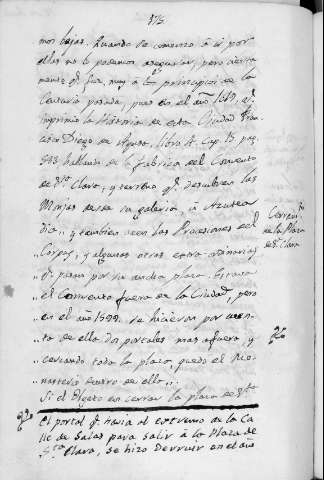 375
mos bajas. Quando se comenzo à ir por
ellas no lo podemos asegurar, pero cierta-
mente qᵉ fue muy à los principios de la
Centuria pasada, pues en el año 1619. qᵉ
imprimio la Historia de esta Ciudad Fran-
cisco Diego de Aynsa, libro 4. Cap. 13 pag.
543 hablando de la fabrica del Convento
de Sᵗᵃ Clara, y terreno qᵉ descubren las
Monjas desde su galeria, à Azutea
dice, y tambien veen las Procesiones del
„ Corpus, y algunas otras extra-ordinarias
„ qᵉ pasan por su ancha plaza. Estava
„ el Convento fuera de la Ciudad, pero
„ en el año se hicieron por
„ to de ello dos portales mas afuera, y
„ cercando toda la plaza quedo el Mo-
„ nasterio dentro de ella „.
Si el Objeto en cerrar la plaza de Sᵗᵃ
El portal qᵉ havia al extremo de la Ca-
lle de Salas para salir à la Plaza de
Sᵗᵃ Clara, se hizo derruir en el año
de la Plaza
de Sᵗᵃ Clara